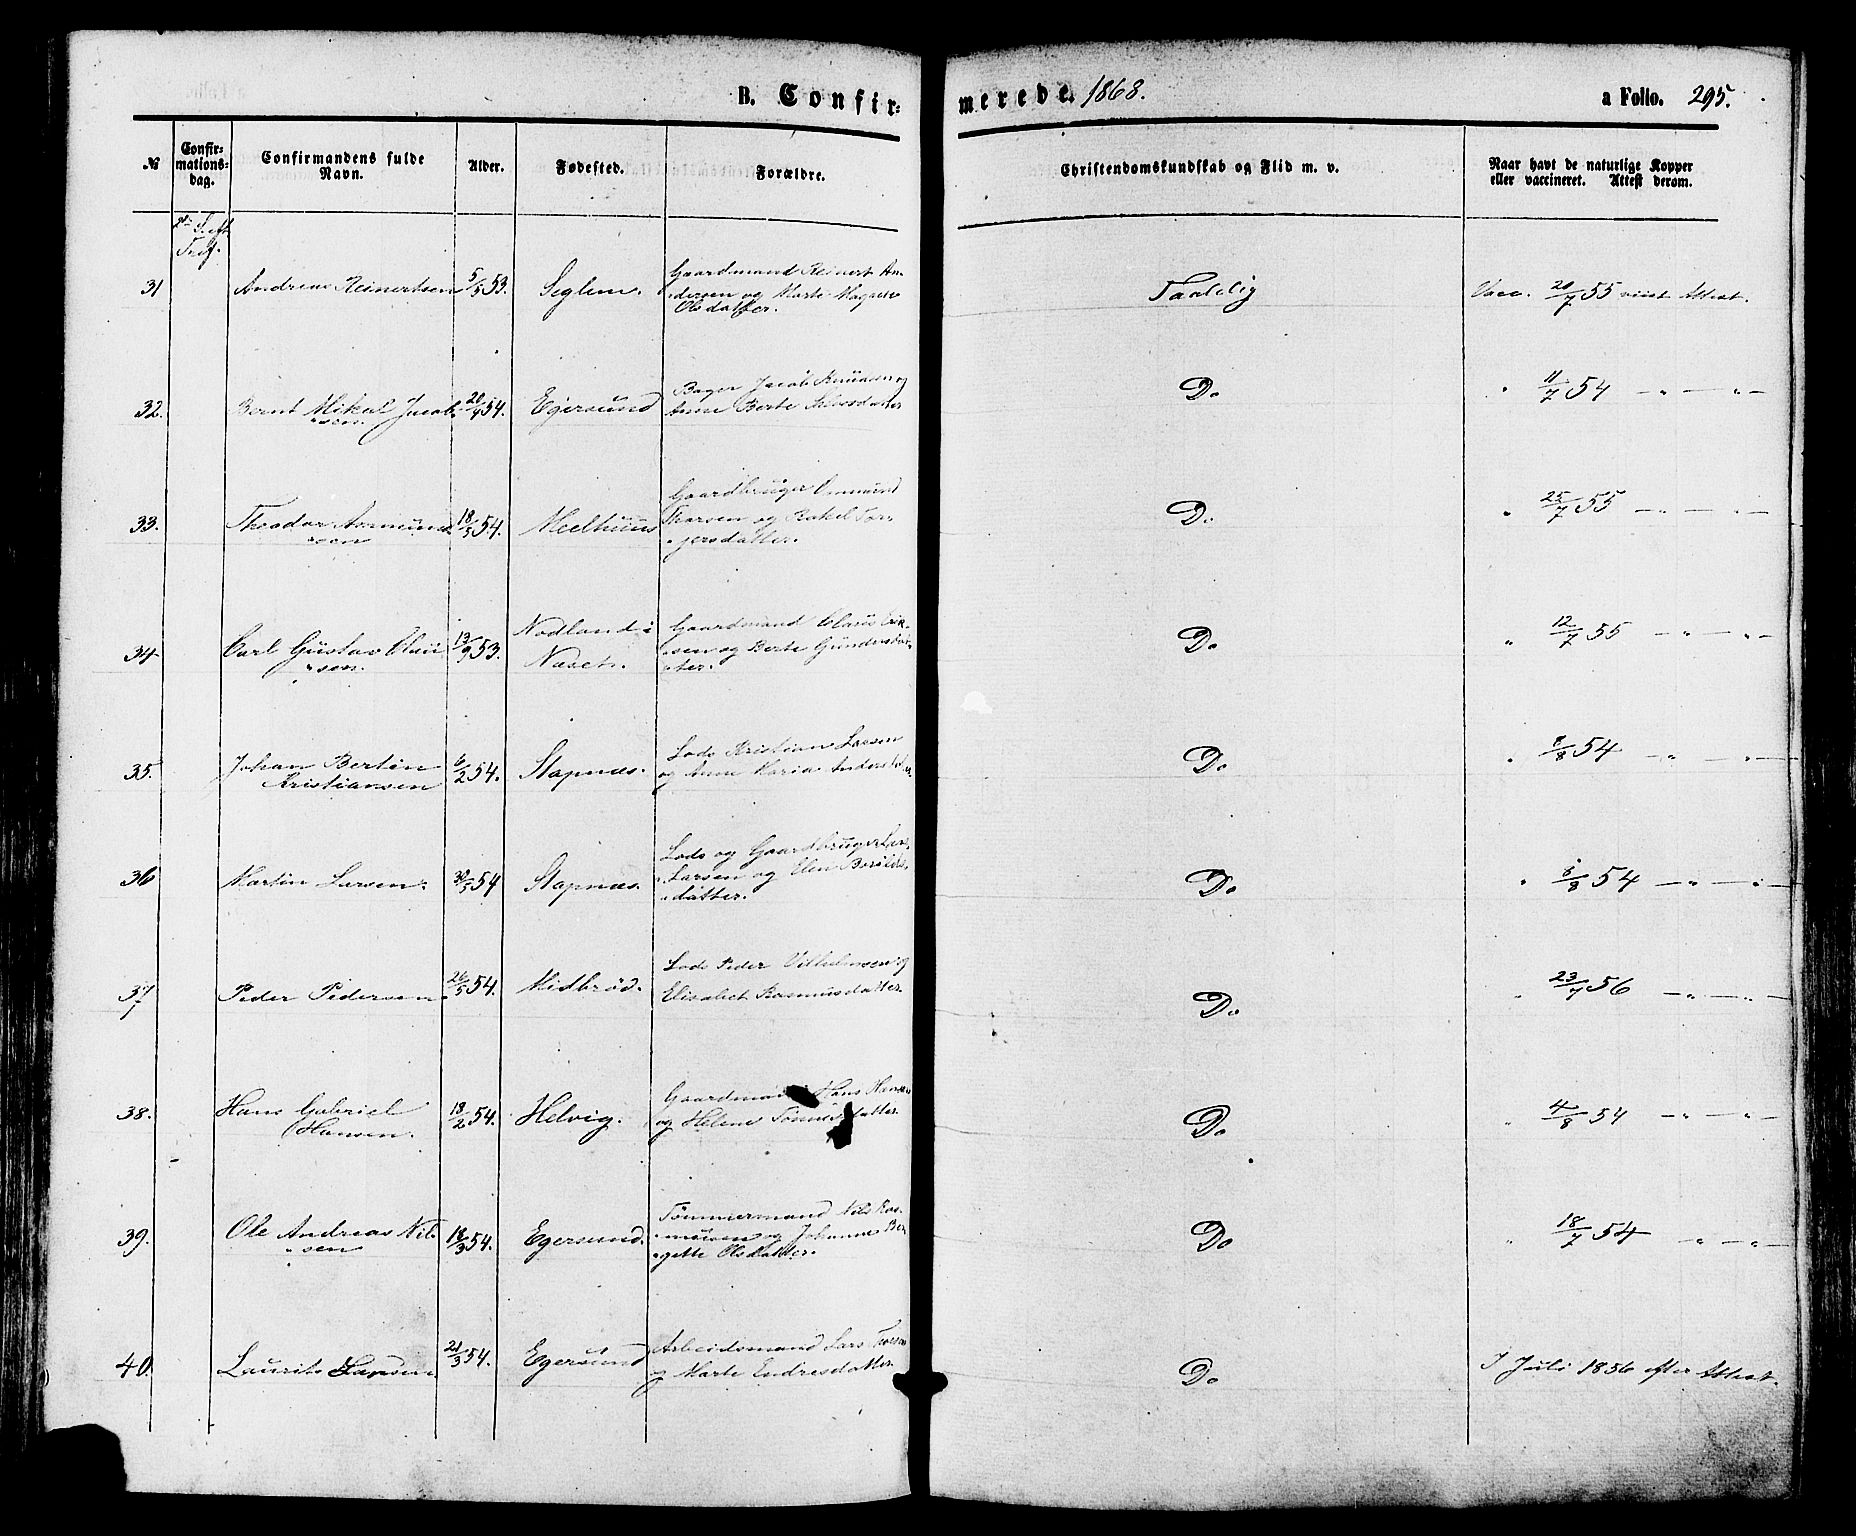 B. Confir=
merede. 1868.
a Folio. 295.
№
Confir=
mations=
dag.
Confirmandens fulde
Navn.
Alder.
Fødested.
Forældre.
Christendomskundskab og Flid m. v.
Naar havt de naturlige Kopper
eller vaccineret. Attest derom.
31 Andreas Reinertsen 5/5 53. Seglem. Gaardmand Reinert An-
dersen og Marte Magrete
Olsdatter.
Taalelig
Vacc. 20/7 55 viist Attest.
32. Bernt Mikal Jacob-
sen 20/4 54. Egersund Bager Jacob Knudsen og
Anne Berte
Do
" 11/7 54 — " — " —
33. Theodor
sen 18/5 54. Meelhuus Gaardbruger Ommund
Thorsen og Rakel Tor-
gersdatter.
Do
" 25/7 55 — " — " —
34 Carl Gustav Claü-
sen. 13/9 53. Nodland i
Næset. Gaardmand Claus Erik-
sen og Berte Gundersdat-
ter.
Do
" 12/7 55 — " — " —
35. Johan Bertin
Kristiansen 6/2 54. Stapnæs. Lods Kristian Larsen
og Anne Maria
Do
" 8/8 54 — " — " —
36 Martin Larsen. 30/5 54 Stapnæs. Lods og Gaardbruger Lars
Larsen og Elen
datter.
Do
" 8/8 54 — " — " —
37 Peder Pedersen 26/5 54. Midbrød. Lods Peder Vilhelmsen og
Elisabet Rasmusdatter.
Do
" 23/7 56 — " — " —
38. Hans Gabriel
Hansen. 18/2 54. Helvig. Gaardmand Hans Hansen
og Helene Tønnesdatter
Do
" 4/8 54 — " — " —
39. Ole Andreas Nil-
sen 18/3 54. Egersund. Tømmermand Nils Ras-
mussen og Johanne Ber-
gette Olsdatter.
Do
" 18/7 54 — " — " —
40. Laurits Larsen 21/3 54. Egersund Arbeidsmand Lars
og Marte Endresdatter
Do
I Juli 1856 efter Attest.